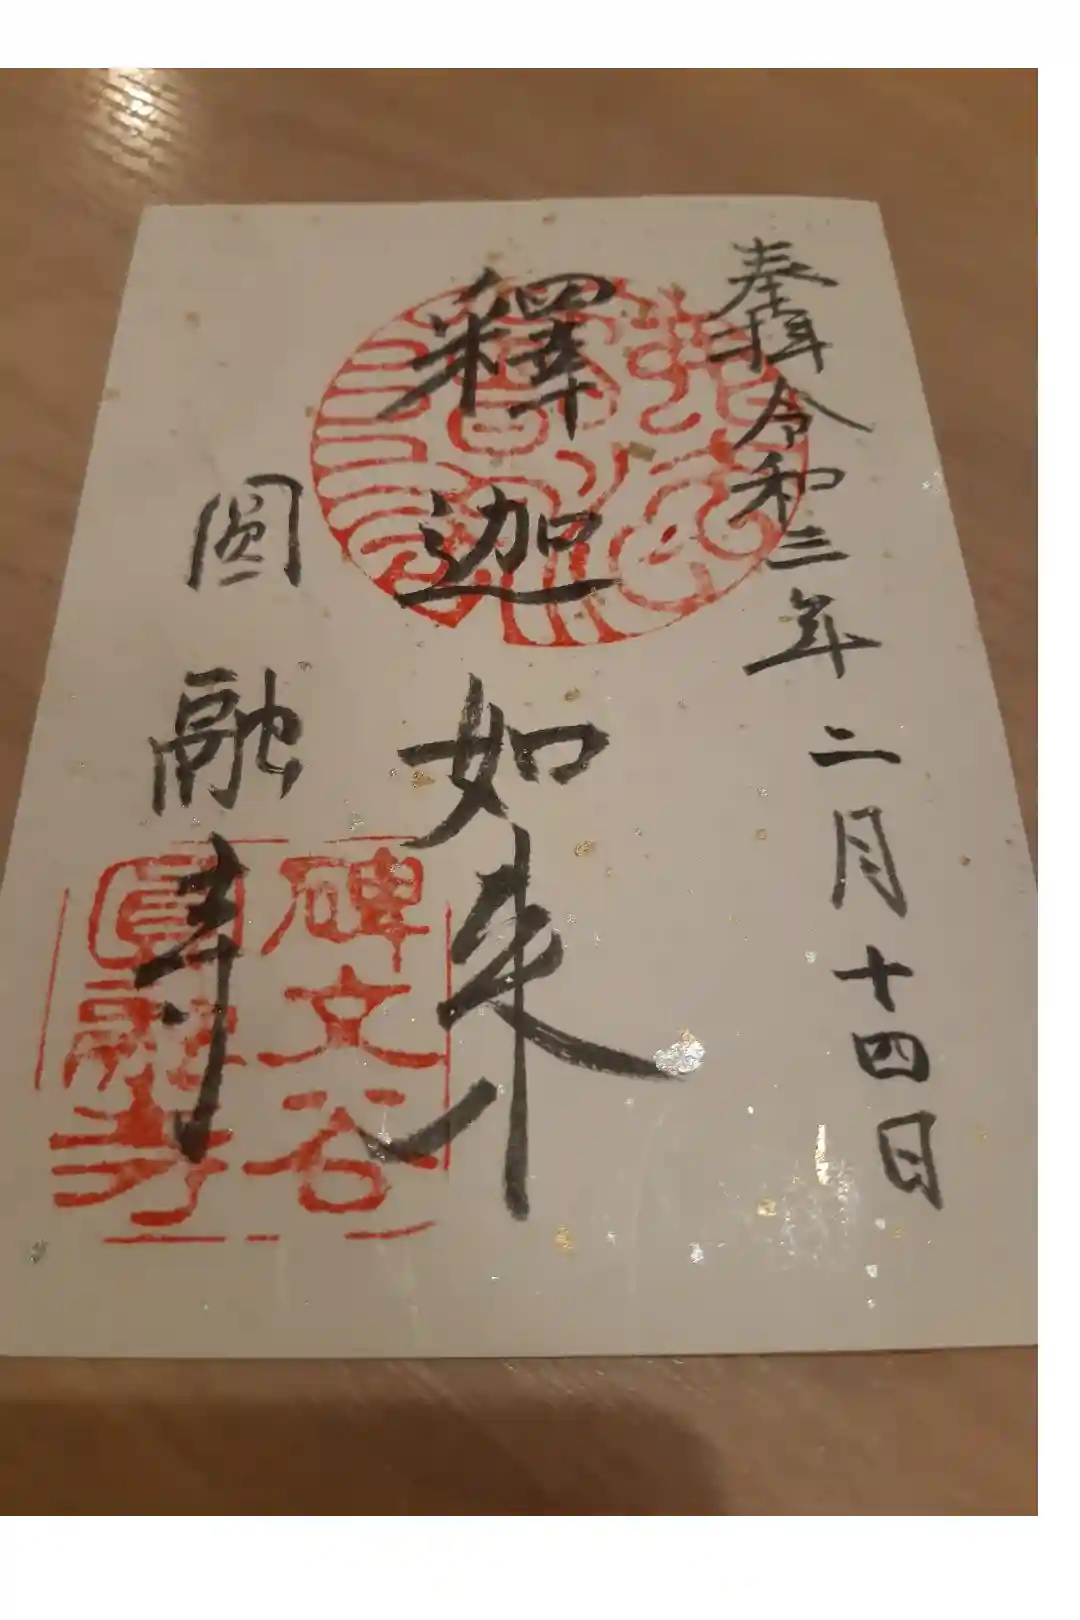 奉拝令和三年二月十四日
釋迦如来
圓融寺
碑文谷
圓融寺